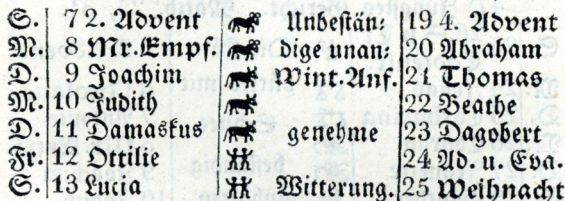 S. 7 2. Advent Unbestän: 19 4. Advent
M. 8 Mr. Empf. dige unan: 20 Abraham
D. 9 Joachim Wint. Anf. 21 Thomas
M. 10 Judith 22 Beathe
D. 11 Damaskus genehme 23 Dagobert
Fr. 12 Ottilie 24 Ad. u. Eva.
S. 13 Lucia Witterung. 25 Weihnacht